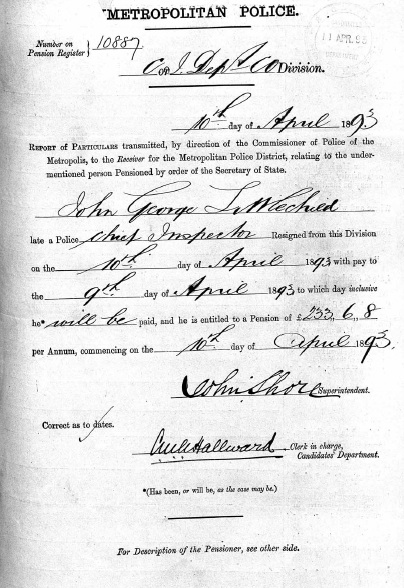 METROPOLITAN POLICE.
11 APR. 93
Number on
Pension Register } 10887
C or I. Dept CO Division.
10th day of April 1893
REPORT OF PARTICULARS transmitted, by direction of the Commissioner of Police of the
Metropolis, to the Receiver for the Metropolitan Police District, relating to the under-
mentioned person Pensioned by order of the Secretary of State.
John George Littlechild
late a Police Chief Inspector Resigned from this Division
on the 10th day of April 1893 with pay to
the 9th day of April 1893 to which day inclusive
he* will be paid, and he is entitled to a Pension of £233, 6, 8
per Annum, commencing on the 10th day of April 1893.
John Shore Superintendent.
Correct as to dates.
Hallward Clerk in charge,
Candidates' Department.
*(Has been, or will be, as the case may be.)
For Description of the Pensioner, see other side.